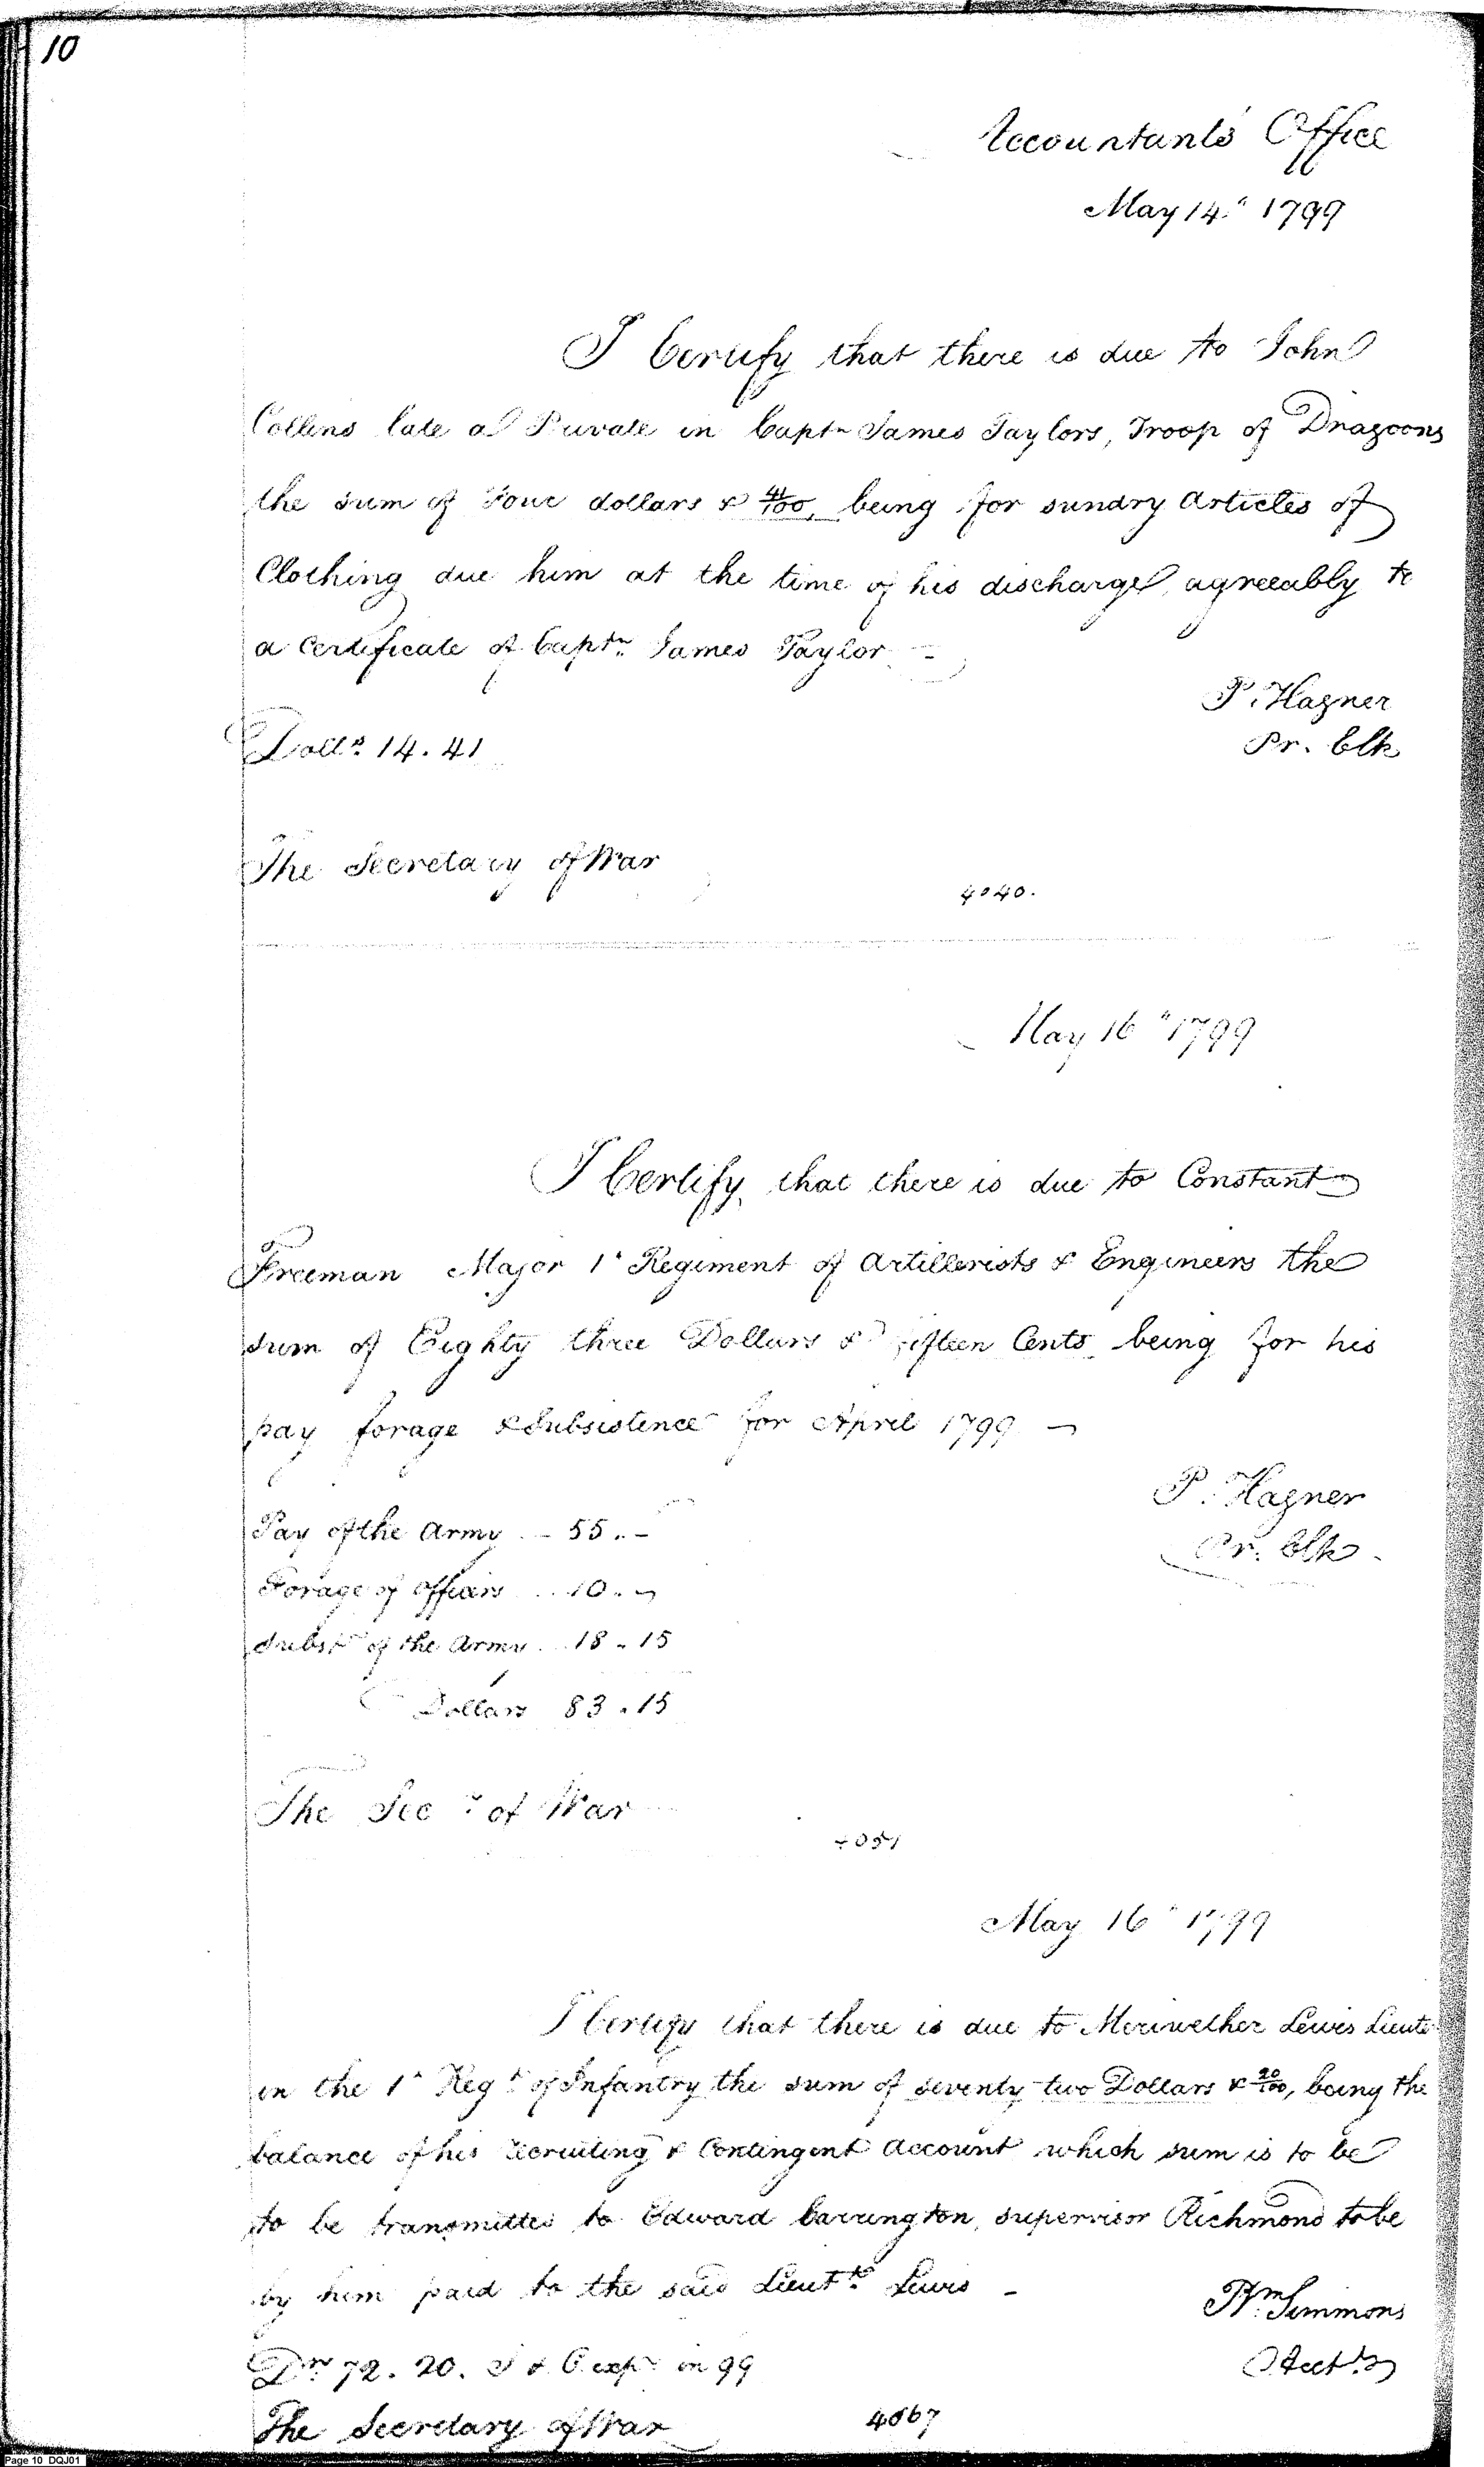 10
Accountants Office
May 14" 1799
I Certify that there is due to John
Collins late a Private in Captn James Taylors, Troop of Dragoons
the sum of Four dollars & 41/100, being for sundry Articles of
Clothing due him at the time of his discharge, agreeably to
a Certificate of Captn James Taylor -
P. Hagner
Pr. Clk
Dolls 14.41
The Secretary of War
4040.
May 16" 1799
I Certify, that there is due to Constant
Freeman Major 1t Regiment of Artillerists & Engineers the
sum of Eighty three Dollars & fifteen Cents being for his
pay forage & Subsistence for April 1799 -
P. Hagner
Pr. Clk.
Pay of the Army - 55. -
Forage of officers .. 10. -
Subsce of the Army .. 18 . 15
Dollars 83 . 15
The Secy of War
4051
May 16" 1799
I Certify that there is due to Meriwether Lewis Lieut
in the 1t Regt of Infantry the sum of seventy two Dollars & 20/100, being the
balance of his recruiting & Contingent Account which sum is to be
to be transmitted to Edward Carrington, supervisor Richmond to be
by him paid to the said Lieutt Lewis -
Wm Simmons
Acctt
Drs 72. 20. exps in 99
The Secretary of War
4067
Page 10 DQJ01